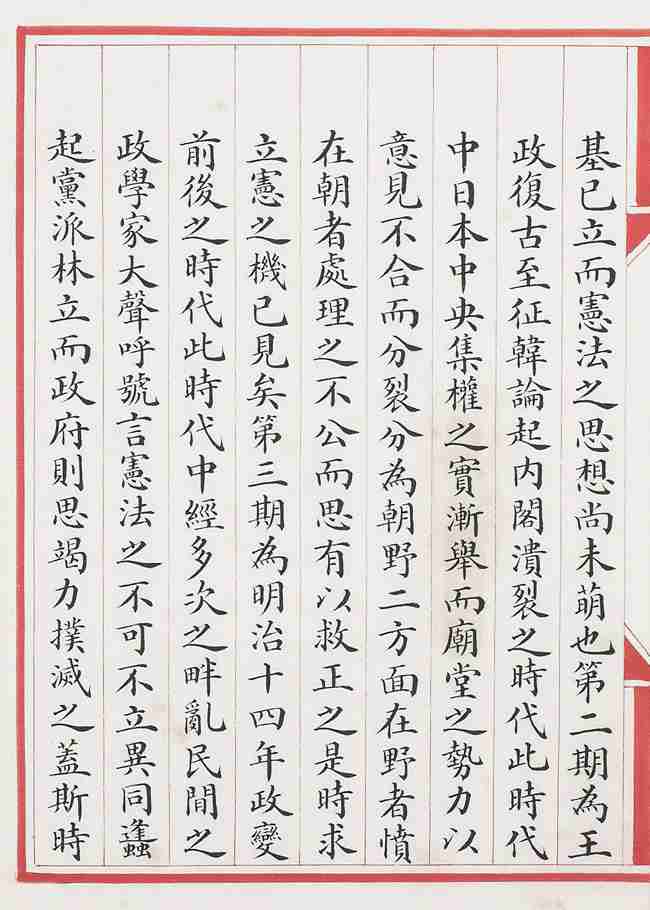 基已立而憲法之思想尚未萌也第二期為王
政復古至征韓論起内閣潰裂之時代此時代
中日本中央集權之實漸舉而廟堂之勢力以
意見不合而分裂分為朝野二方面在野者憤
在朝者處理之不公而思有以救正之是時求
立憲之機已見矣第三期為明治十四年政變
前後之時代此時代中經多次之畔亂民間之
政學家大聲呼號言憲法之不可不立異同蠭
起黨派林立而政府則思竭力撲滅之蓋斯時